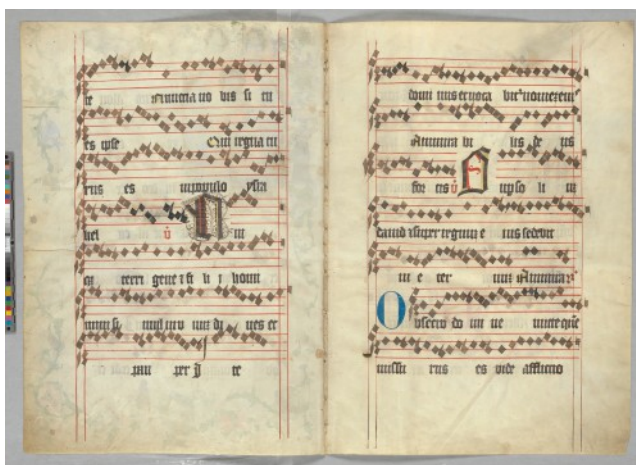 te Nuncia no bis si tu
es ipse Qui regna tu
rus es in populo ysra
hel v̇ Qui
que terri gene i fi li i homi
num si mul in v num di ues et
pau per I te
domi nus et voca bit nomen eius
Ammira bi lis de us
for tis v̇ Sup so li um
dauid et super regnum e ius sedebit
in e ter num Ammira
Obsecro do mi ne mitte quē
missu rus es vide afflictio